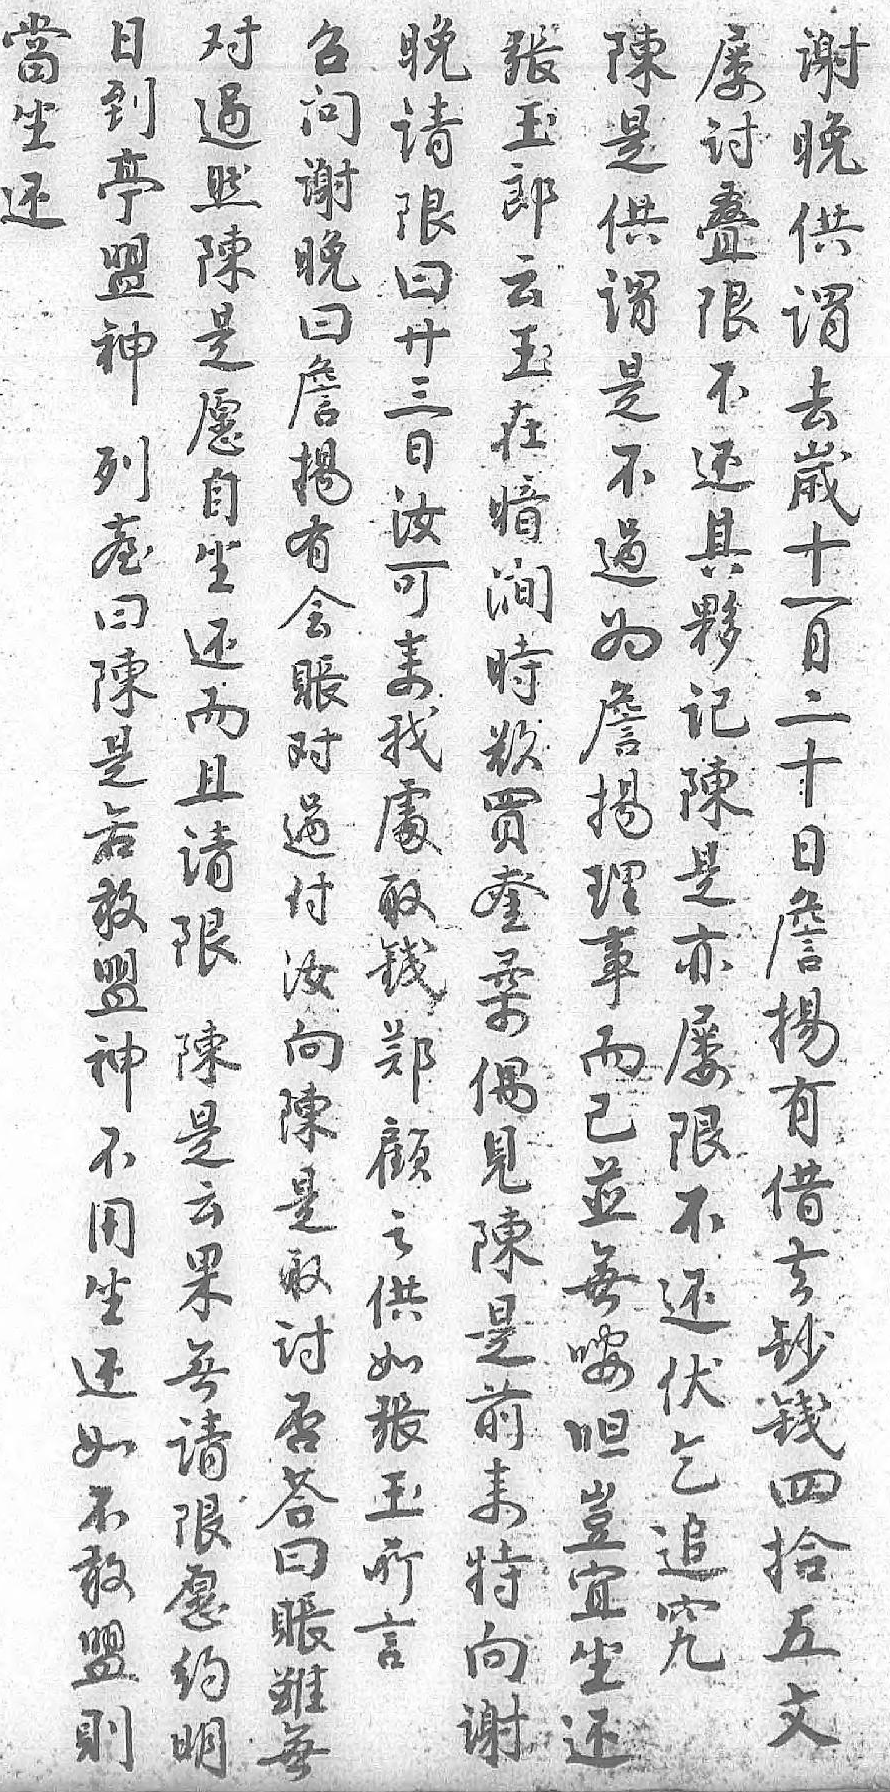 谢晚供谓去歲十一月二十日詹揚有借去钞錢四拾五文
屡讨叠限不还具夥记陳是亦屡限不还伏乞追究
陳是供谓是不过为詹揚理事而已並無嘜呾豈宜坐还
張玉郎云玉在暗澗時欲買奎桑偶見陳是前来特向谢
晚请限曰廿三日汝可来我處取錢郑顧之供如張玉所言
召问谢晚曰詹揚有会賬对过付汝向陳是取讨否荅曰賬雖無
对过然陳是愿自坐还而且请限 陳是云果無请限愿约明
日到亭盟神 列臺曰陳是若敢盟神不用坐还如不敢盟則
當坐还